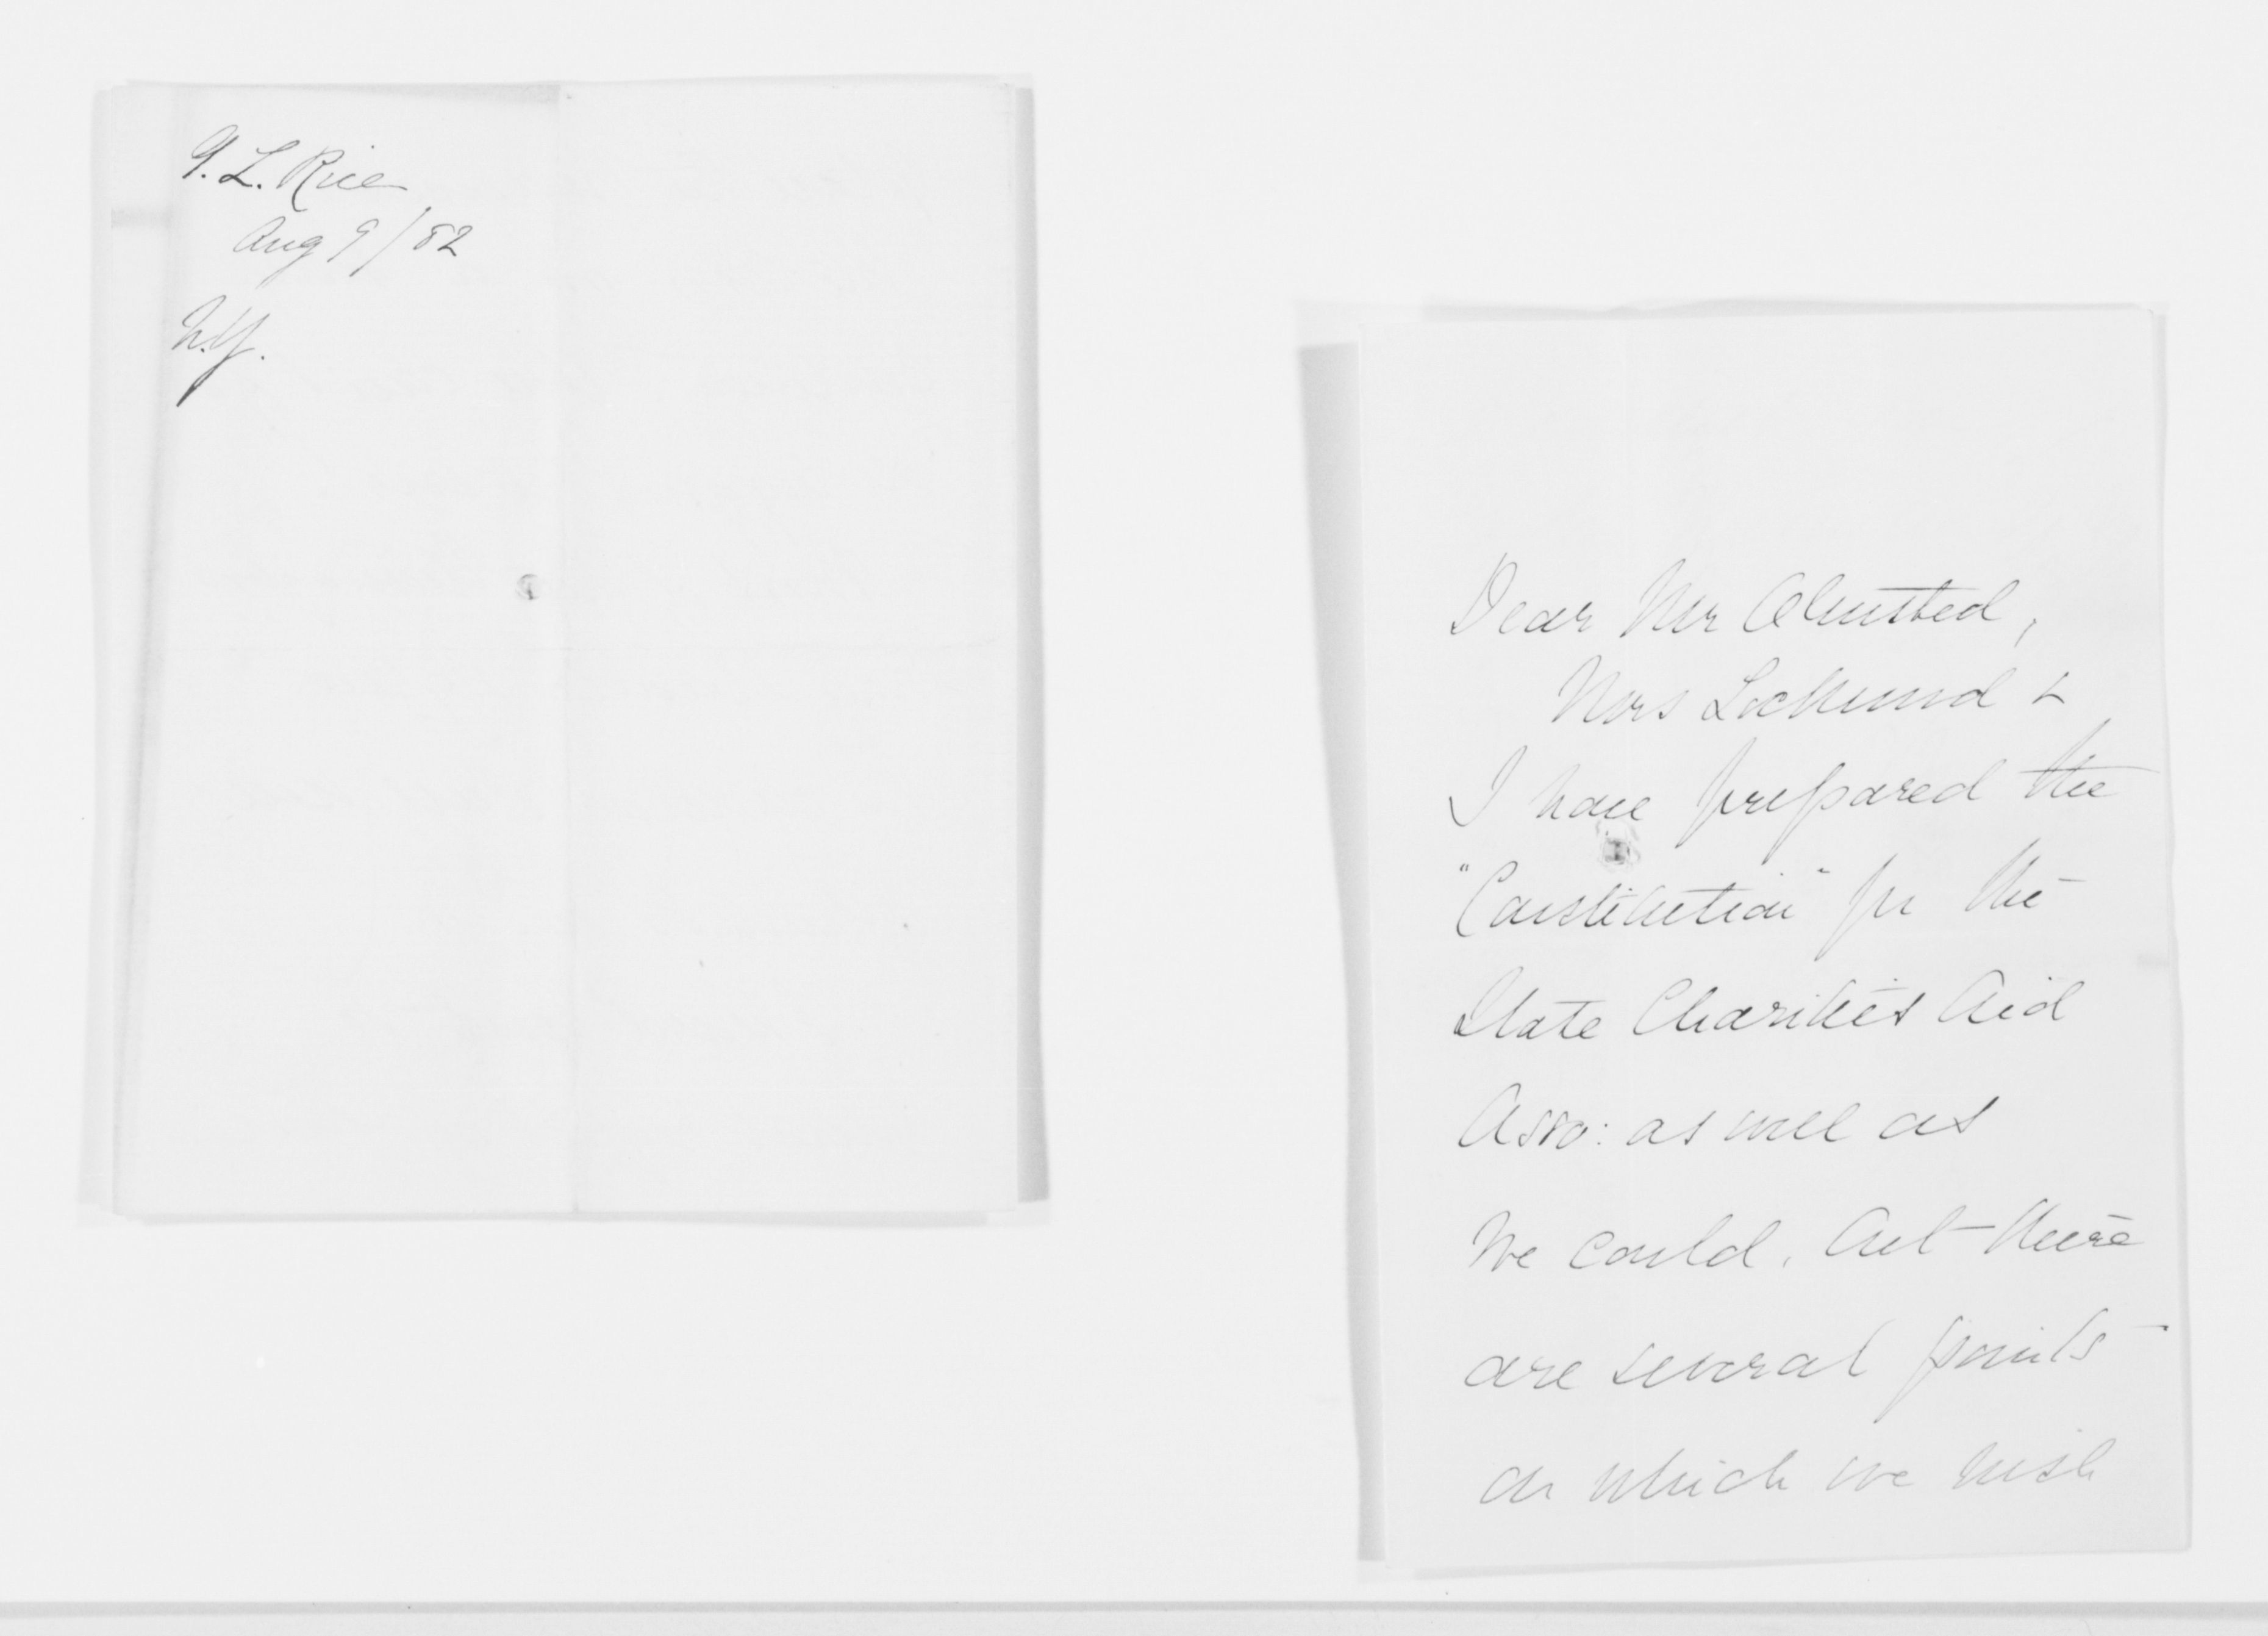 L. Rice
Aug 9/82
N.Y.
Dear Mr Olmsted,
Mrs &
I have prepared the
"Constitution" for the
State Charities Aid
Asso: as well as
we could, but there
are several points
on which we wish